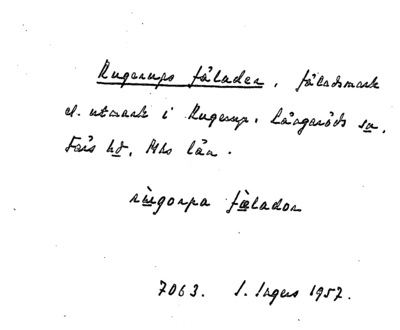 Rugerups fälader, fäladsmark
el. utmark i Rugerup, Långaröds sn,
Färs hd, Mhs län.
rùgorpa fælador
7063. I. Ingers 1957.